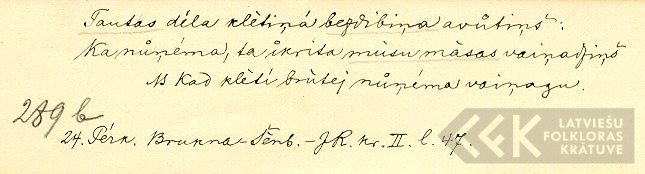 Tautas dēla klētiņā bezdibiņa avůtiņš:
Ka nůņēma, ta ikrita můsu māsas vaiņadziņš
NB Kad klētī brūtej nůņēma vaiņagu.
289 b
24. Pērk. Brukna-Šēnb. - JR. kr. II. l. 47.
LATVIEŠU
FOLKLORAS
KRĀTUVE